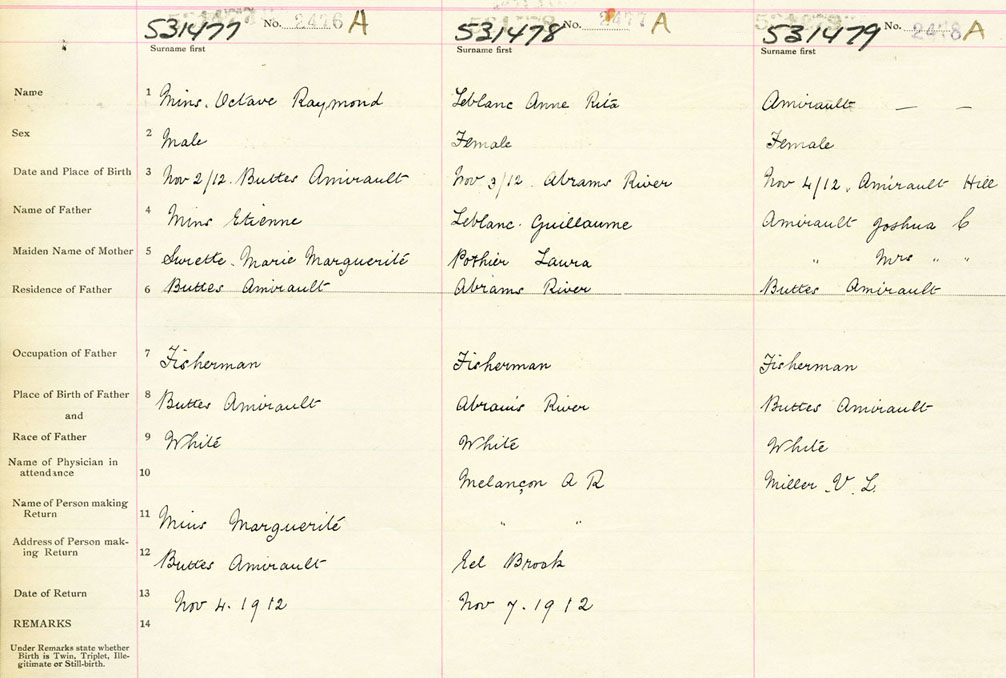 531477 No. 2476 A 531478 No. 2477 A 531479 No. 2478 A
Surname first Surname first Surname first
Name 1 Mius. Octave Raymond Leblanc Anne Rita Amirault — —
Sex 2 Male Female Female
Date and Place of Birth 3 Nov 2/12. Buttes Amirault Nov 3/12. Abrams River Nov 4/12, Amirault Hill
Name of Father 4 Mius Etienne Leblanc. Guillaume Amirault Joshua C
Maiden Name of Mother 5 Surette. Marie Marguerité Pothier Laura " Mrs " "
Residence of Father 6 Buttes Amirault Abrams River Buttes Amirault
Occupation of Father 7 Fisherman Fisherman Fisherman
Place of Birth of Father 8 Buttes Amirault Abrams River Buttes Amirault
and
Race of Father 9 White White White
Name of Physician in
attendance 10 Melançon A R Miller. V. L.
Name of Person making
Return 11 Mius Marguerité " "
Address of Person mak-
ing Return 12 Buttes Amirault Eel Brook
Date of Return 13 Nov 4. 1912 Nov 7. 1912
REMARKS 14
Under Remarks state whether
Birth is Twin, Triplet, Ille-
gitimate or Still-birth.